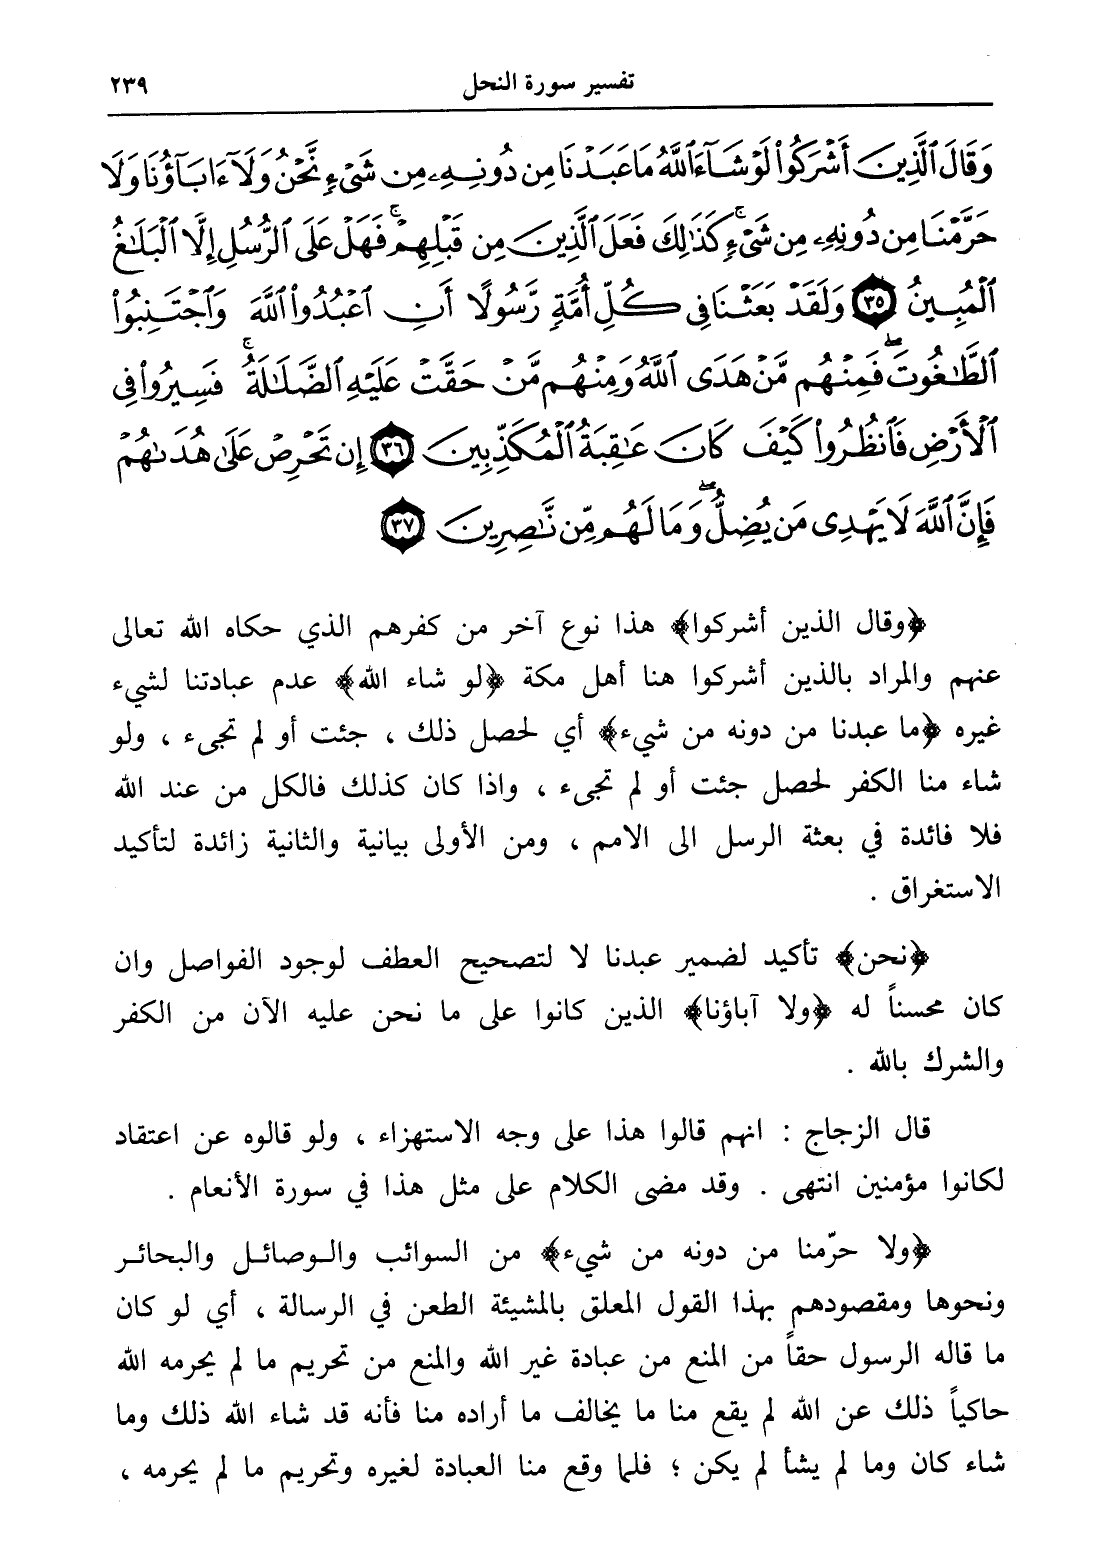 تفسير سورة النحل ٢٣٩
وَقَالَ ٱلَّذِينَ أَشْرَكُوا۟ لَوْ شَآءَ ٱللَّهُ مَا عَبَدْنَا مِن دُونِهِۦ مِن شَىْءٍ نَّحْنُ وَلَآ ءَابَآؤُنَا وَلَا
حَرَّمْنَا مِن دُونِهِۦ مِن شَىْءٍ ۚ كَذَٰلِكَ فَعَلَ ٱلَّذِينَ مِن قَبْلِهِمْ ۚ فَهَلْ عَلَى ٱلرُّسُلِ إِلَّا ٱلْبَلَٰغُ
ٱلْمُبِينُ ٣٥ وَلَقَدْ بَعَثْنَا فِى كُلِّ أُمَّةٍ رَّسُولًا أَنِ ٱعْبُدُوا۟ ٱللَّهَ وَٱجْتَنِبُوا۟
ٱلطَّٰغُوتَ ۖ فَمِنْهُم مَّنْ هَدَى ٱللَّهُ وَمِنْهُم مَّنْ حَقَّتْ عَلَيْهِ ٱلضَّلَٰلَةُ ۚ فَسِيرُوا۟ فِى
ٱلْأَرْضِ فَٱنظُرُوا۟ كَيْفَ كَانَ عَٰقِبَةُ ٱلْمُكَذِّبِينَ ٣٦ إِن تَحْرِصْ عَلَىٰ هُدَىٰهُمْ
فَإِنَّ ٱللَّهَ لَا يَهْدِى مَن يُضِلُّ ۖ وَمَا لَهُم مِّن نَّٰصِرِينَ ٣٧
﴿وقال الذين أشركوا﴾ هذا نوع آخر من كفرهم الذي حكاه الله تعالى
عنهم والمراد بالذين أشركوا هنا أهل مكة ﴿لو شاء الله﴾ عدم عبادتنا لشيء
غيره ﴿ما عبدنا من دونه من شيء﴾ أي لحصل ذلك ، جئت أو لم تجىء ، ولو
شاء منا الكفر لحصل جئت أو لم تجىء ، واذا كان كذلك فالكل من عند الله
فلا فائدة في بعثة الرسل الى الامم ، ومن الأولى بيانية والثانية زائدة لتأكيد
الاستغراق .
﴿نحن﴾ تأكيد لضمير عبدنا لا لتصحيح العطف لوجود الفواصل وان
كان محسناً له ﴿ولا آباؤنا﴾ الذين كانوا على ما نحن عليه الآن من الكفر
والشرك بالله .
قال الزجاج : انهم قالوا هذا على وجه الاستهزاء ، ولو قالوه عن اعتقاد
لكانوا مؤمنين انتهى . وقد مضى الكلام على مثل هذا في سورة الأنعام .
﴿ولا حرّمنا من دونه من شيء﴾ من السوائب والوصائل والبحائر
ونحوها ومقصودهم بهذا القول المعلق بالمشيئة الطعن في الرسالة ، أي لو كان
ما قاله الرسول حقاً من المنع من عبادة غير الله والمنع من تحريم ما لم يحرمه الله
حاكياً ذلك عن الله لم يقع منا ما يخالف ما أراده منا فأنه قد شاء الله ذلك وما
شاء كان وما لم يشأ لم يكن ؛ فلما وقع منا العبادة لغيره وتحريم ما لم يحرمه ،